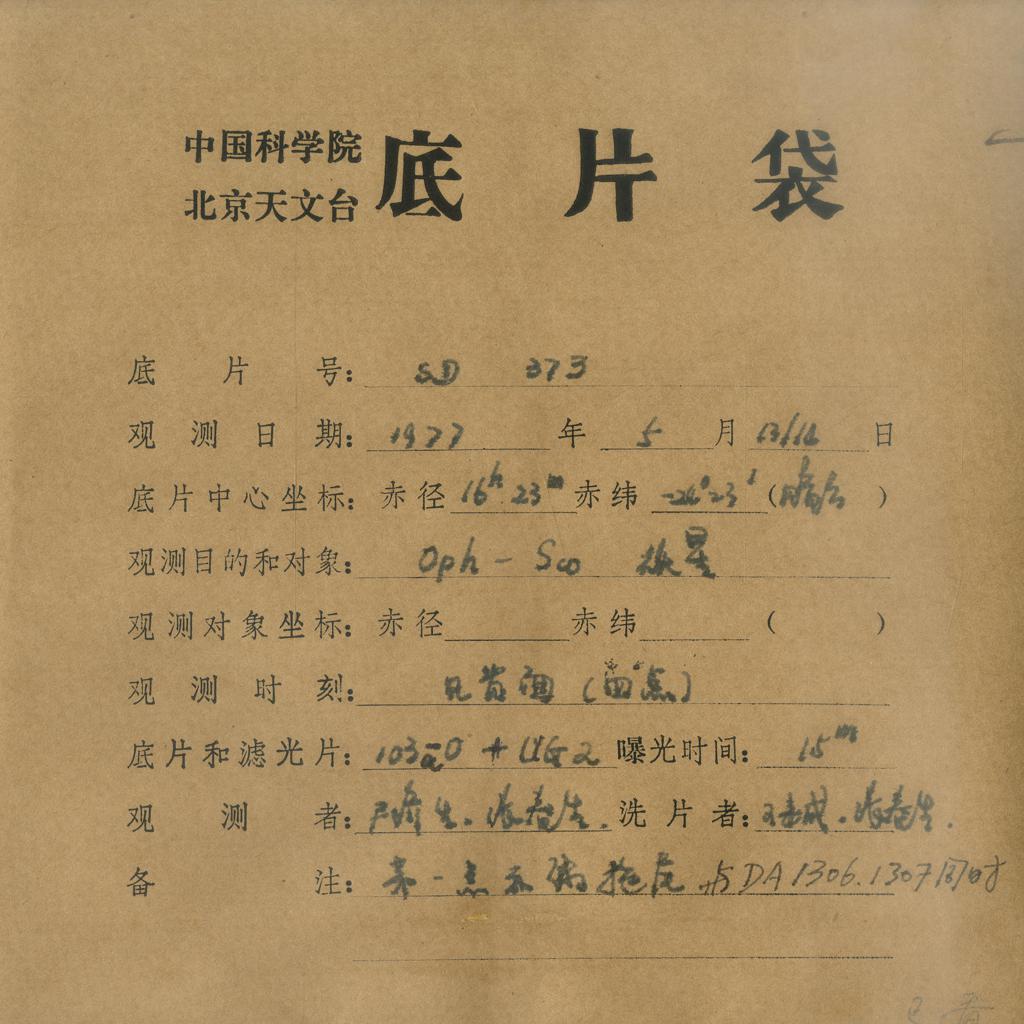 中国科学院
北京天文台
底片袋
底片号： SD 373
观测日期： 1977 年 5 月 13/14 日
底片中心坐标： 赤径 16h 23m 赤纬 ( )
观测目的和对象： Oph - Sco
观测对象坐标： 赤径 赤纬 ( )
观测时刻：
底片和滤光片： 103aO + UG2 曝光时间： 15m
观测者： 洗片者：
备注： 第一点 与DA1306.1307同时